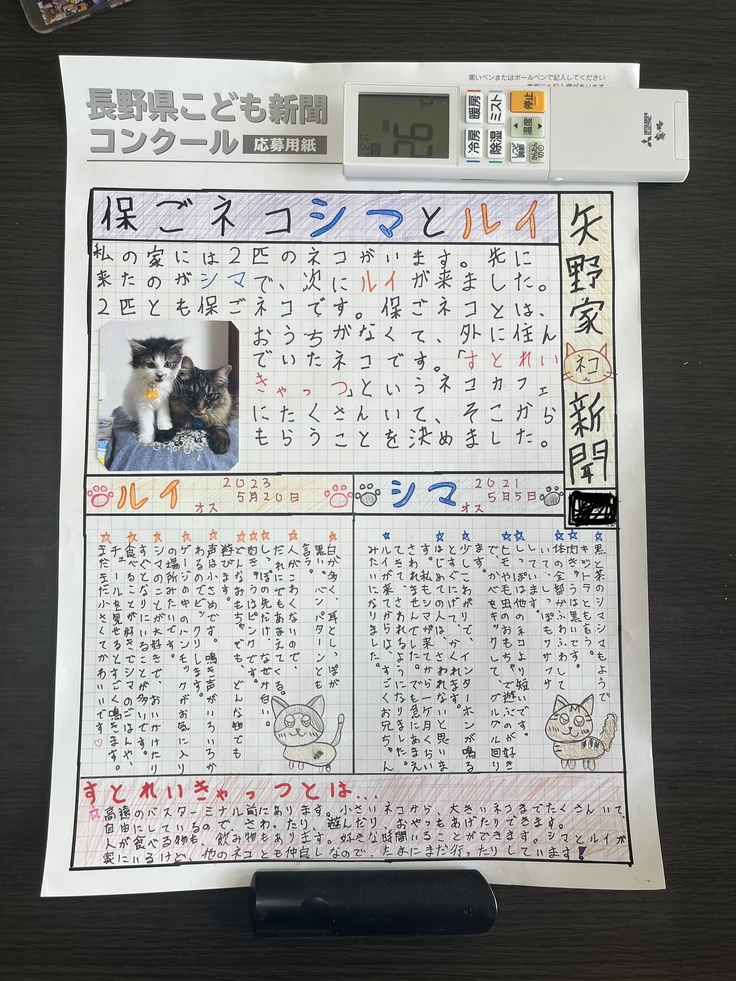 黒いペンまたはボールペンで記入してください
長野県こども新聞
コンクール 応募用紙
冷房
暖房
除湿
ミスト
停止
温度
26
保ごネコシマとルイ
矢野家
ネコ
新聞
私の家には2匹のネコがいます。先に
来たのがシマで、次にルイが来ました。
2匹とも保ごネコです。保ごネコとは、
おうちがなくて、外に住ん
でいたネコです。「すとれい
きゃっつ」というネコカフェ
にたくさんいて、そこから
もらうことを決めました。
シマ
2021
5月5日
オス
ルイ
2023
5月20日
オス
☆黒と茶のシマシマもようで
キットラとも言う。
☆肉きゅうは黒です。
☆体の全部がふわふわして
いて、しっぽもフサフサ
しています。
☆しっぽは他のネコより短いです。
☆ヒモや毛虫のおもちゃで遊ぶのが好き
で、かべをキックして、グルグル回り
ます。
☆少しこわがりで、インターホンが鳴る
とすぐにげて、かくれます。
☆はじめての人は、さわれないと思いま
す。私もシマが来てから一ケ月くらい
さわれませんでした。でも急にあまえ
てきて、さわれるようになりました。
☆ルイが来てからは、すごくお兄ちゃん
みたいになりました。
☆白が多く、耳としっぽが
黒い。ハンパターンとも
言う。
☆人がこわくないので、
だれにでもあまえてくる。
☆しっぽの先だけ、なぜか白い。
☆肉きゅうはピンクです。
☆どんなおもちゃでも、どんな物でも
遊びます。
☆声は小さめです。鳴き声がいろいろか
わるのでビックリします。
☆ゲージの中のハンモックがお気に入り
の場所みたいです。
☆シマのことが大好きで、おいかけたり
すぐとなりにいることが多いです。
☆食べることが好きでシマのごはんや、
チュールを見せるとすごく鳴きます。
☆まだまだ小さくてかわいいです♡
すとれいきゃっつとは...
☆高遠のバスターミナル前にあります。小さいネコから、大きいネコまでたくさんいて、
自由にしているのをさわったり、遊んだり、おやつもあげたりできます。
人が食べる物も、飲み物もあります。好きな時間いることができます。シマとルイが
家にいるけど、他のネコとも仲良しなので、たまにまだ行ったりしています!